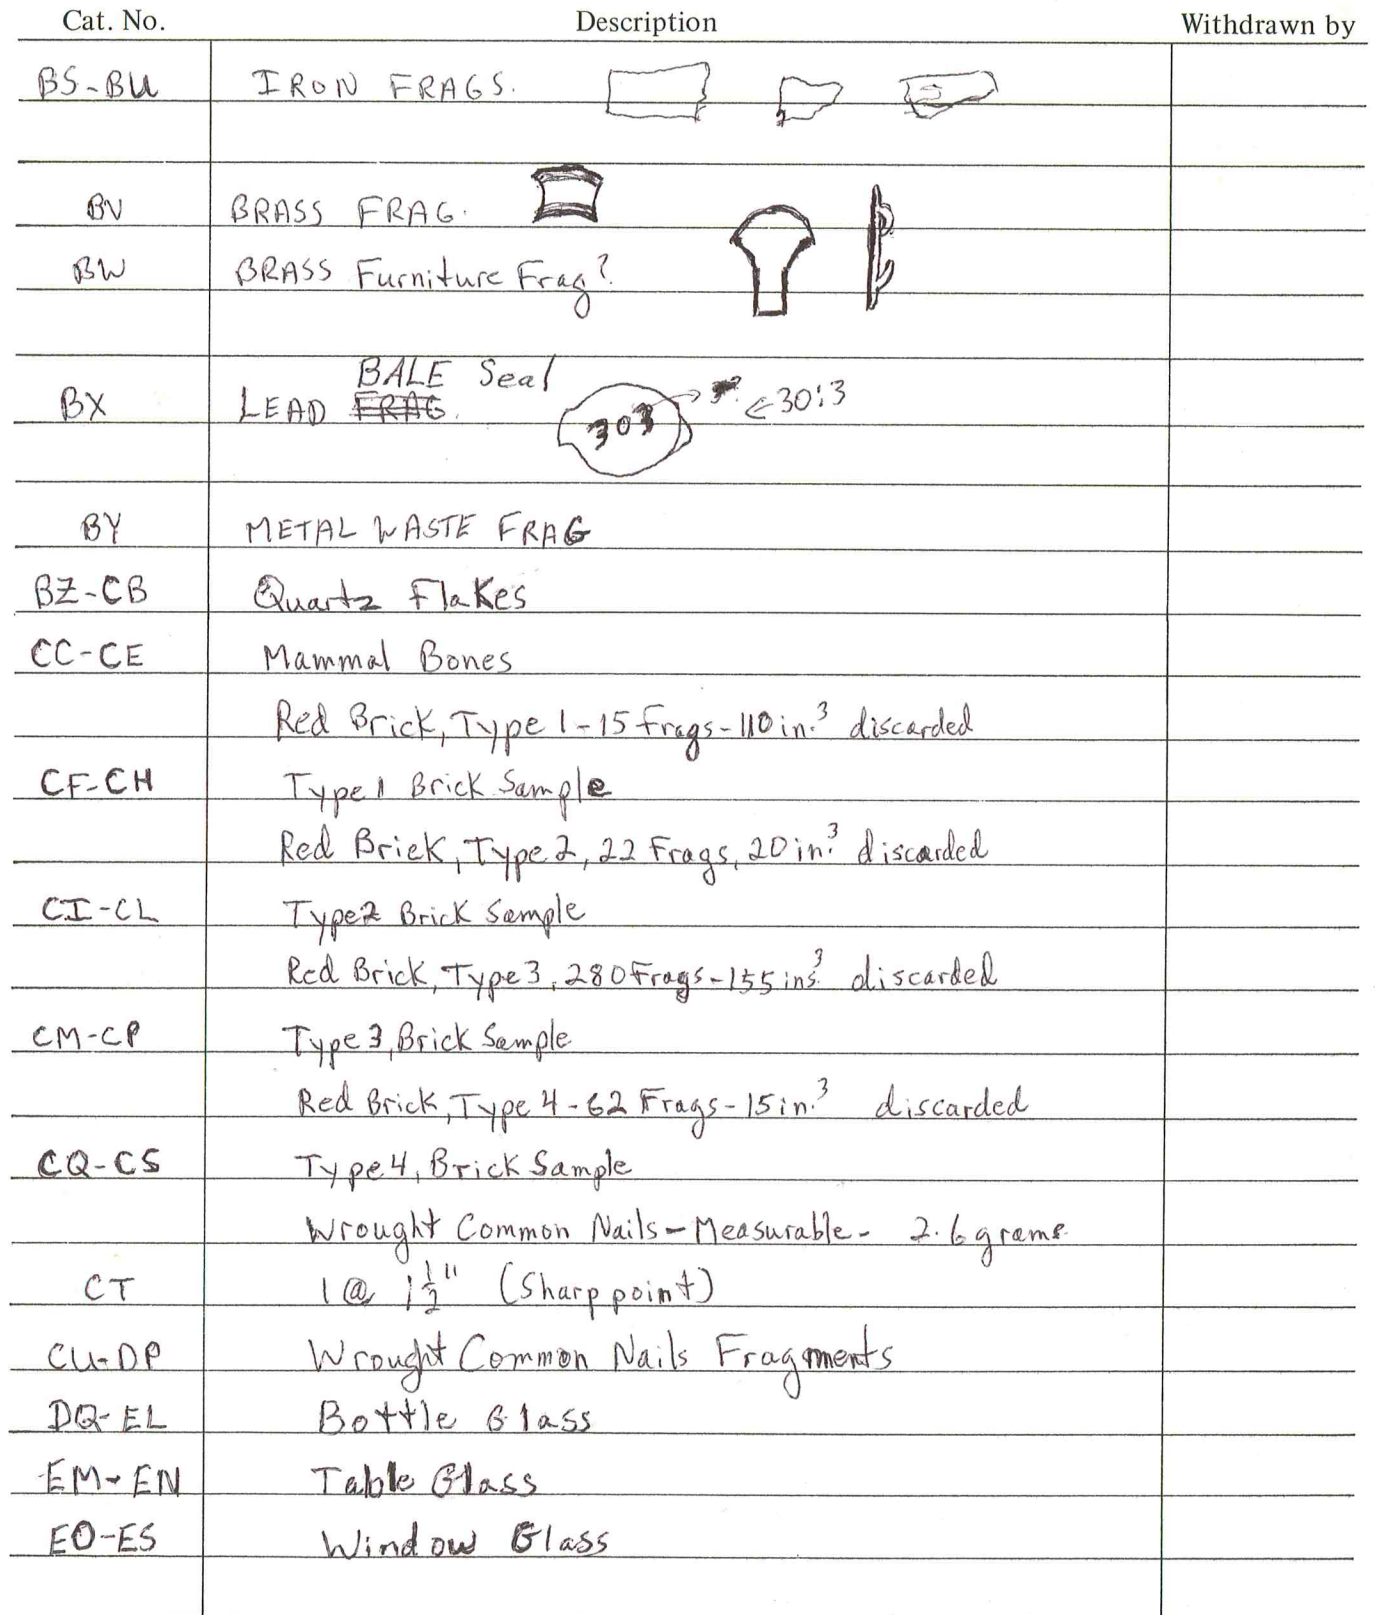 Cat. No. Description Withdrawn by
BS-BU IRON FRAGS.
BV BRASS FRAG.
BW BRASS Furniture Frag?
BALE Seal
BX LEAD FRAG. 303 ← 30:3
BY METAL WASTE FRAG
BZ-CB Quartz Flakes
CC-CE Mammal Bones
Red Brick, Type 1-15 frags-110 in.³ discarded
CF-CH Type 1 Brick Sample
Red Brick, Type 2, 22 Frags, 20 in.³ discarded
CI-CL Type 2 Brick Sample
Red Brick, Type 3, 280 Frags-155 ins.³ discarded
CM-CP Type 3, Brick Sample
Red Brick, Type 4-62 Frags-15 in.³ discarded
CQ-CS Type 4, Brick Sample
Wrought Common Nails-Measurable- 2.6 grams
CT 1 @ 1 1/2" (Sharp point)
CU-DP Wrought Common Nails Fragments
DQ-EL Bottle Glass
EM-EN Table Glass
EO-ES Window Glass